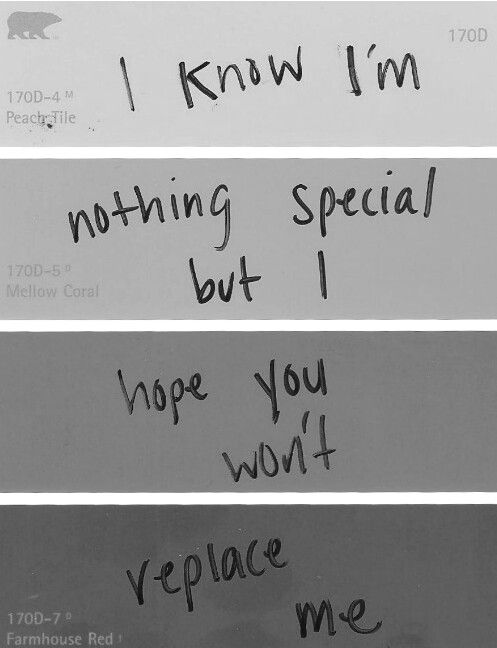 170D
I know I'm
170D-4 M
Peach Tile
nothing special
170D-5 D
Mellow Coral
but I
hope you
won't
replace
me
170D-7 D
Farmhouse Red